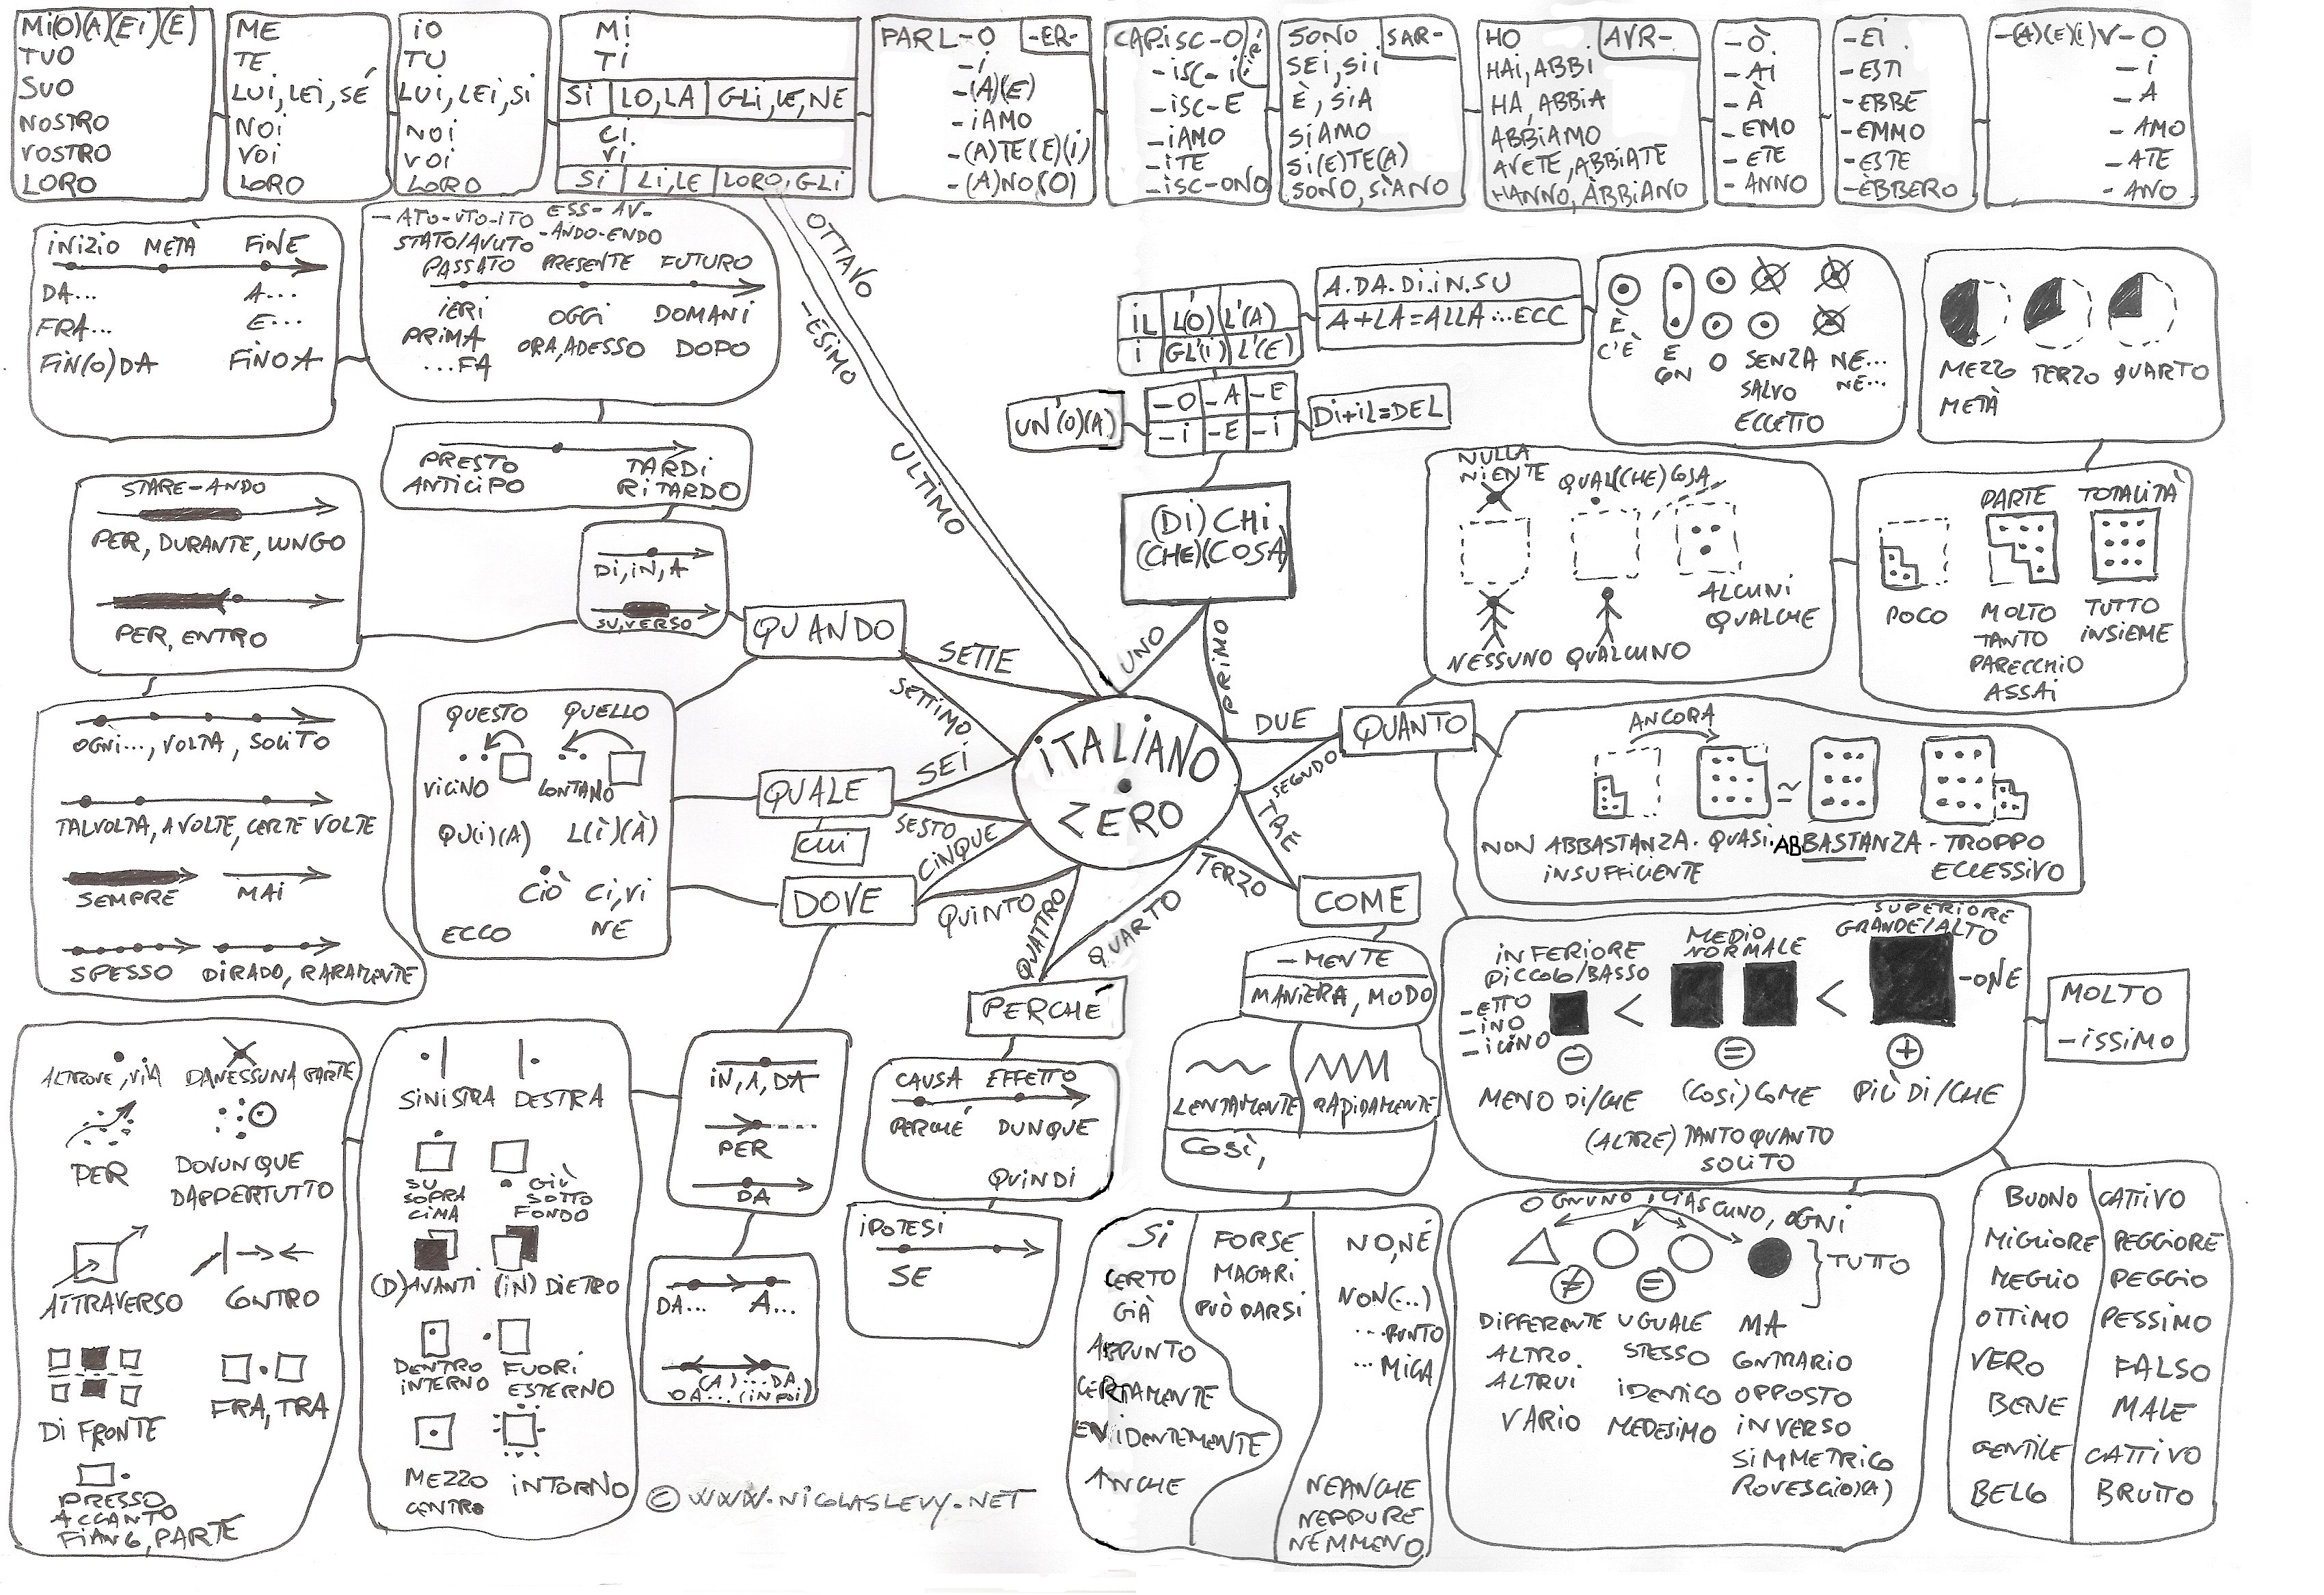 MI(O)(A)(EI)(E)
TUO
SUO
NOSTRO
VOSTRO
LORO
ME
TE
LUI, LEI, SÉ
NOI
VOI
LORO
IO
TU
LUI, LEI, SI
NOI
VOI
LORO
MI
TI
SI LO, LA GLI, LE, NE
CI
VI
SI LI, LE LORO, GLI
PARL-O -ER-
-I
-(A)(E)
-IAMO
-(A)TE(E)(I)
-(A)NO(O)
CAPISC-O
-ISC-I
-ISC-E
-IAMO
-ITE
-ISC-ONO
SONO SAR-
SEI, SII
È, SIA
SIAMO
SI(E)TE(A)
SONO, SÌANO
HO AVR-
HAI, ABBI
HA, ABBIA
ABBIAMO
AVETE, ABBIATE
HANNO, ÀBBIANO
-Ò
-AI
-À
-EMO
-ETE
-ANNO
-EI
-ESTI
-EBBE
-EMMO
-ESTE
-ÈBBERO
-(A)(E)(I)V-O
-I
-A
-AMO
-ATE
-ANO
INIZIO METÀ FINE
DA... A...
FRA... E...
FIN(O)DA FINO A
-ATO-UTO-ITO ESS- AV-
STATO/AVUTO -ANDO-ENDO
PASSATO PRESENTE FUTURO
IERI OGGI DOMANI
PRIMA ORA, ADESSO DOPO
...FA
PRESTO TARDI
ANTICIPO RITARDO
STARE-ANDO
PER, DURANTE, LUNGO
PER, ENTRO
DI, IN, A
SU, VERSO
OTTAVO
-ESIMO
ULTIMO
IL L(O) L'(A)
I GL'(I) L'(E)
A.DA.DI.IN.SU
A+LA=ALLA...ECC
UN'(O)(A)
-O -A -E
-I -E -I
DI+IL=DEL
(DI) CHI
(CHE)(COSA)
È
C'È
E
CON
O
SENZA
SALVO
ECCETTO
NE...
NE...
MEZZO TERZO QUARTO
METÀ
NULLA
NIENTE QUAL(CHE)COSA
ALCUNI
QUALCHE
NESSUNO QUALCUNO
PARTE TOTALITÀ
POCO MOLTO TUTTO
TANTO INSIEME
PARECCHIO
ASSAI
QUANDO
SETTE
SETTIMO
UNO
PRIMO
DUE
SEGNDO
QUANTO
ITALIANO
ZERO
SEI
SESTO
QUALE
CUI
CINQUE
QUINTO
DOVE
QUATTRO
QUARTO
TERZO
TRE
COME
PERCHÉ
ANCORA
NON ABBASTANZA. QUASI. ABBASTANZA - TROPPO
INSUFFICIENTE ECCESSIVO
OGNI..., VOLTA, SOLITO
TALVOLTA, A VOLTE, CERTE VOLTE
SEMPRE MAI
SPESSO DIRADO, RARAMENTE
QUESTO QUELLO
VICINO LONTANO
QU(I)(A) L(Ì)(À)
CIÒ CI, VI
ECCO NE
-MENTE
MANIERA, MODO
LENTAMENTE RAPIDAMENTE
COSÌ,
INFERIORE MEDIO SUPERIORE
PICCOLO/BASSO NORMALE GRANDE/ALTO
-ETTO
-INO
-ICINO
-ONE
< <
- = +
MENO DI/CHE (COSÌ) COME PIÙ DI/CHE
(ALTRE) TANTO QUANTO
SOLITO
MOLTO
-ISSIMO
ALTROVE, VIA DA NESSUNA PARTE
PER DOVUNQUE
DAPPERTUTTO
ATTRAVERSO CONTRO
DI FRONTE FRA, TRA
PRESSO
ACCANTO
FIANCO, PARTE
SINISTRA DESTRA
SU GIÙ
SOPRA SOTTO
CIMA FONDO
(D)AVANTI (IN) DIETRO
DENTRO FUORI
INTERNO ESTERNO
MEZZO INTORNO
CENTRO
IN, A, DA
PER
DA
DA... A...
(A)...DA
DA...(IN POI)
CAUSA EFFETTO
PERCHÉ DUNQUE
QUINDI
IPOTESI
SE
SI
CERTO
GIÀ
APPUNTO
CERTAMENTE
EVIDENTEMENTE
ANCHE
FORSE
MAGARI
PUÒ DARSI
NO, NÉ
NON(...)
...PUNTO
...MICA
NEANCHE
NEPPURE
NEMMENO
OGNUNO, CIASCUNO, OGNI
TUTTO
≠ =
DIFFERENTE UGUALE MA
ALTRO STESSO CONTRARIO
ALTRUI IDENTICO OPPOSTO
VARIO MEDESIMO INVERSO
SIMMETRICO
ROVESCIO(A)
BUONO CATTIVO
MIGLIORE PEGGIORE
MEGLIO PEGGIO
OTTIMO PESSIMO
VERO FALSO
BENE MALE
GENTILE CATTIVO
BELLO BRUTTO
© WWW.NICOLASLEVY.NET